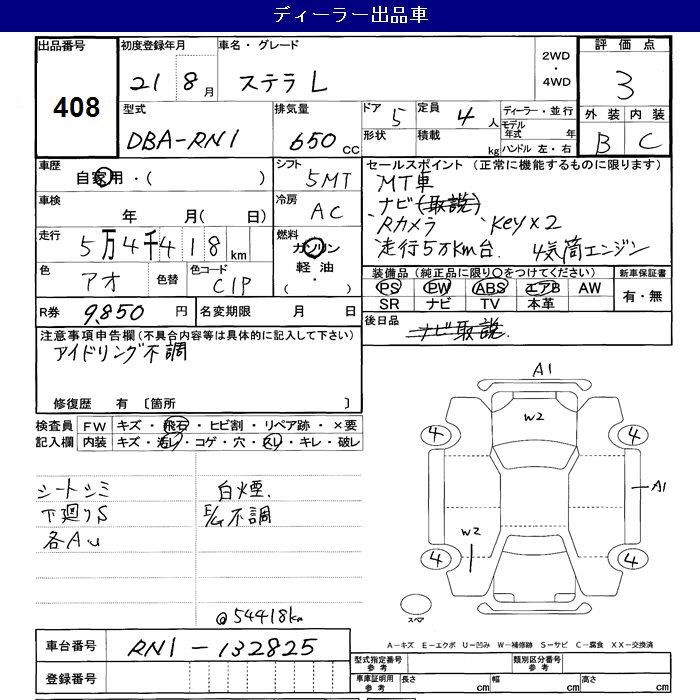 ディーラー出品車
出品番号 初度登録年月 車名・グレード 2WD・4WD 評価点
408 21 8月 ステラ L 3
型式 排気量 ドア 5 定員 4人 ディーラー・並行 外装 内装
DBA-RN1 650cc 形状 積載 kg モデル年式 年 B C
ハンドル 左・右
車歴 自家用・( ) シフト 5MT セールスポイント (正常に機能するものに限ります)
車検 年 月( 日) 冷房 AC MT車
ナビ(取説)
Rカメラ Key×2
走行 5万4千418km 燃料 ガソリン 軽油 ・( ) 走行5万km台. 4気筒エンジン
色 アオ 色替 色コード C1P 装備品(純正品に限り○をつけてください) 新車保証書
PS PW ABS エアB AW 有・無
SR ナビ TV 本革
R券 9,850円 名変期限 月 日 後日品
ナビ取説
注意事項申告欄(不具合内容等は具体的に記入して下さい)
アイドリング不調
修復歴 有〔箇所 〕
検査員 FW キズ・飛石・ヒビ割・リペア跡・×要
記入欄 内装 キズ・汚レ・コゲ・穴・スレ・キレ・破レ
シートシミ 白煙.
下廻りS E/G不調
各AU
@54418km
A1
W2
4 4
A1
W2
4 4
スペア
A－キズ E－エクボ U－凹み W－補修跡 S－サビ C－腐食 XX－交換済
車台番号 RN1-132825
登録番号
型式指定番号 参考 類別区分番号 参考
車庫証明用 参考 長さ cm 幅 cm 高さ cm